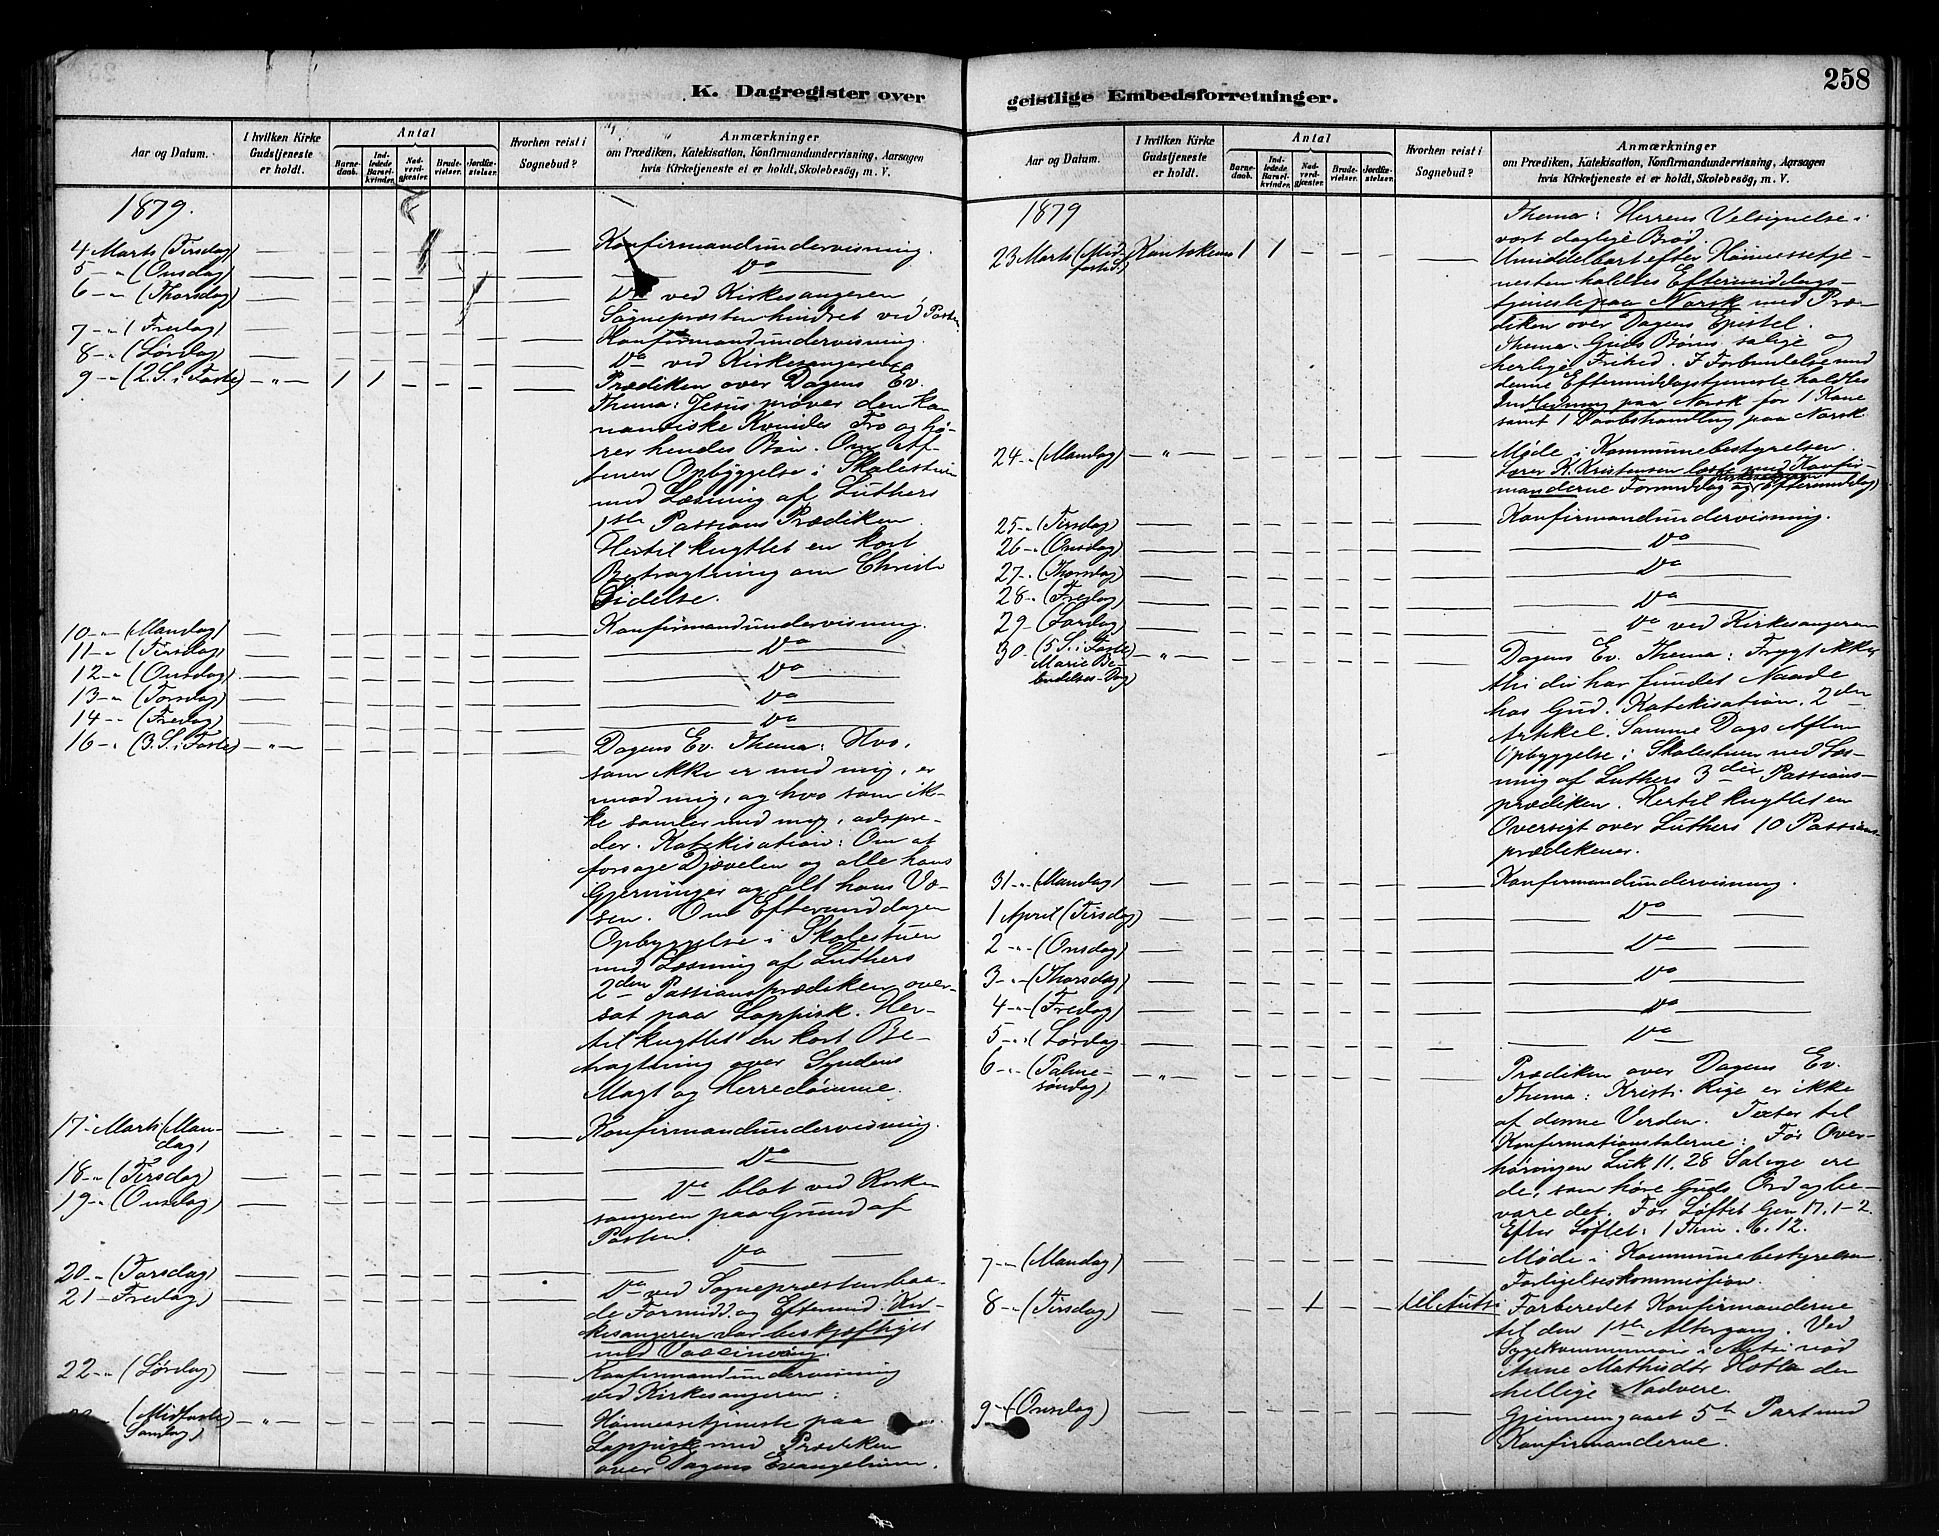 258
K. Dagregister over
geistlige Embedsforretninger.
Aar og Datum.
I hvilken Kirke Gudstjeneste er holdt.
Antal
Barnedaab.
Indledede Barselkvinder.
Nadverdgjester.
Brudevielser.
Jordfæstelser.
Hvorhen reist i Sognebud?
Anmærkninger
om Prædiken, Katekisation, Konfirmandundervisning, Aarsagen
hvis Kirketjeneste ei er holdt, Skolebesøg, m. V.
1879.
4 Marts (Tirsdag) — — — — — — — Konfirmandundervisning.
5 - " (Onsdag) — — — — — — — Do
6 - " (Thorsdag) — — — — — — — Do ved Kirkesangeren,
Sognepræsten hindret ved Posten
7 - " (Fredag) — — — — — — — Konfirmandundervisning.
8 - " (Lørdag) — — — — — — — Do ved Kirkesangeren
9 - " (2. S. i Faste) — " — 1 1 — — — — Prædiken over Dagens Ev.
Thema: Jesus prøver den kananæiske
Kvindes Tro og hører
hendes Bøn. Om Aftenen
Opbyggelse i Skolestuen
med Læsning af Luthers
1ste Passions Prædiken.
Hertil knyttet en kort
Betragtning om Christi
Lidelse.
10 - " (Mandag) — — — — — — — Konfirmandundervisning.
11 - " (Tirsdag) — — — — — — — Do
12 - " (Onsdag) — — — — — — — Do
13 - " (Torsdag) — — — — — — — Do
14 - " (Fredag) — — — — — — — Do
16 - " (3. S. i Faste) — " — — — — — — — Dagens Ev. Thema: Hvo,
som ikke er med mig, er
mod mig, og hvo som ikke
samler med mig, adspreder.
Katekisation: Om at
forsage Djævelen og alle hans
Gjerninger og alt hans Væsen.
Om Eftermiddagen
Opbyggelse i Skolestuen
med Læsning af Luthers
2den Passionsprædiken oversat
paa Lappisk. Hertil
knyttet en kort Betragtning
over Syndens
Magt og Herredømme.
17 - Marts (Mandag) — — — — — — — Konfirmandundervisning.
18 - " (Tirsdag) — — — — — — — Do
19 - " (Onsdag) — — — — — — — Do blot ved Kirkesangeren
paa Grund af
Posten.
20 - " (Torsdag) — — — — — — — Do
21 - Fredag) — — — — — — — Do ved Sognepræsten baade
Formidd. og Eftermid. Kirkesangeren
var beskjæftiget
med Vaccinering.
22 - " (Lørdag) — — — — — — — Konfirmandundervisning
ved Kirkesangeren.
(Midfaste Søndag) — " — — — — — — — Høimessetjeneste paa
Lappisk med Prædiken
over Dagens Evangelium.
Aar og Datum.
I hvilken Kirke Gudstjeneste er holdt.
Antal
Barnedaab.
Indledede Barselkvinder.
Nadverdgjester.
Brudevielser.
Jordfæstelser.
Hvorhen reist i Sognebud?
Anmærkninger
om Prædiken, Katekisation, Konfirmandundervisning, Aarsagen
hvis Kirketjeneste ei er holdt, Skolebesøg, m. V.
1879
Thema: Herrens Velsignelse i
vort daglige Brød.
23 Marts (Midfaste S.) Kautokeino 1 1 — — — — Umiddelbart efter Høimessetjenesten
holdtes Eftermiddagstjeneste
paa Norsk med Prædiken
over Dagens Epistel.
Thema: Guds Børns salige og
herlige Frihed. I Forbindelse med
denne Eftermiddagstjeneste holdtes
Indledning paa Norsk for 1 Kone
samt 1 Daabshandling paa Norsk.
24 - " (Mandag) — " — — — — — — — Møde i Kommunebestyrelsen.
Lærer K. Kristensen læste med Konfirmanderne
Formiddag og Kirkesangeren (Eftermiddag)
25 - " (Tirsdag) — — — — — — — Konfirmandundervisning.
26 - " (Onsdag) — — — — — — — Do
27 - " (Thorsdag) — — — — — — — Do
28 - " (Fredag) — — — — — — — Do
29 - (Lørdag) — — — — — — — Do ved Kirkesangeren
30 - (5 S. i Faste) Mariæ Bebudelses-Dag) — " — — — — — — — Dagens Ev. Thema: Frygt ikke
thi du har fundet Naade
hos Gud. Katekisation. 2den
Artikel. Samme Dags Aften
Opbyggelse i Skolestuen med Læsning
af Luthers 3die Passionsprædiken.
Hertil knyttet en
Oversigt over Luthers 10 Passionsprædikener.
31 - " (Mandag) — — — — — — — Konfirmandundervisning.
1 April (Tirsdag) — — — — — — — Do
2 - " (Onsdag) — — — — — — — Do
3 - " (Thorsdag) — — — — — — — Do
4 - " (Fredag) — — — — — — — Do
5 - " (Lørdag — — — — — — — Do
6 - " (Palmesøndag) — " — — — — — — — Prædiken over Dagens Ev.
Thema: Kristi Rige er ikke
af denne Verden. Texter til
Konfirmationstalerne: Før Overhøringen
Luk 11. 28 Salige ere
de, som høre Guds Ord og bevare
det. Før Løftet Gen 17. 1-2.
Efter Løftet: 1 Thim. 6. 12.
7 - " (Mandag) — — — — — — — Møde i Kommunebestyrelsen.
Forligelseskommission.
8 - " (Tirsdag) — — — 1 — — til Autsi Forberedet Konfirmanderne
til den 1ste Altergang. Ved
Sygekommunion i Autsi nød
Anne Mathisdtr Hætta den
hellige Nadvere.
9 - (Onsdag) — — — — — — — Gjennemgaaet 5te Part med
Konfirmanderne.